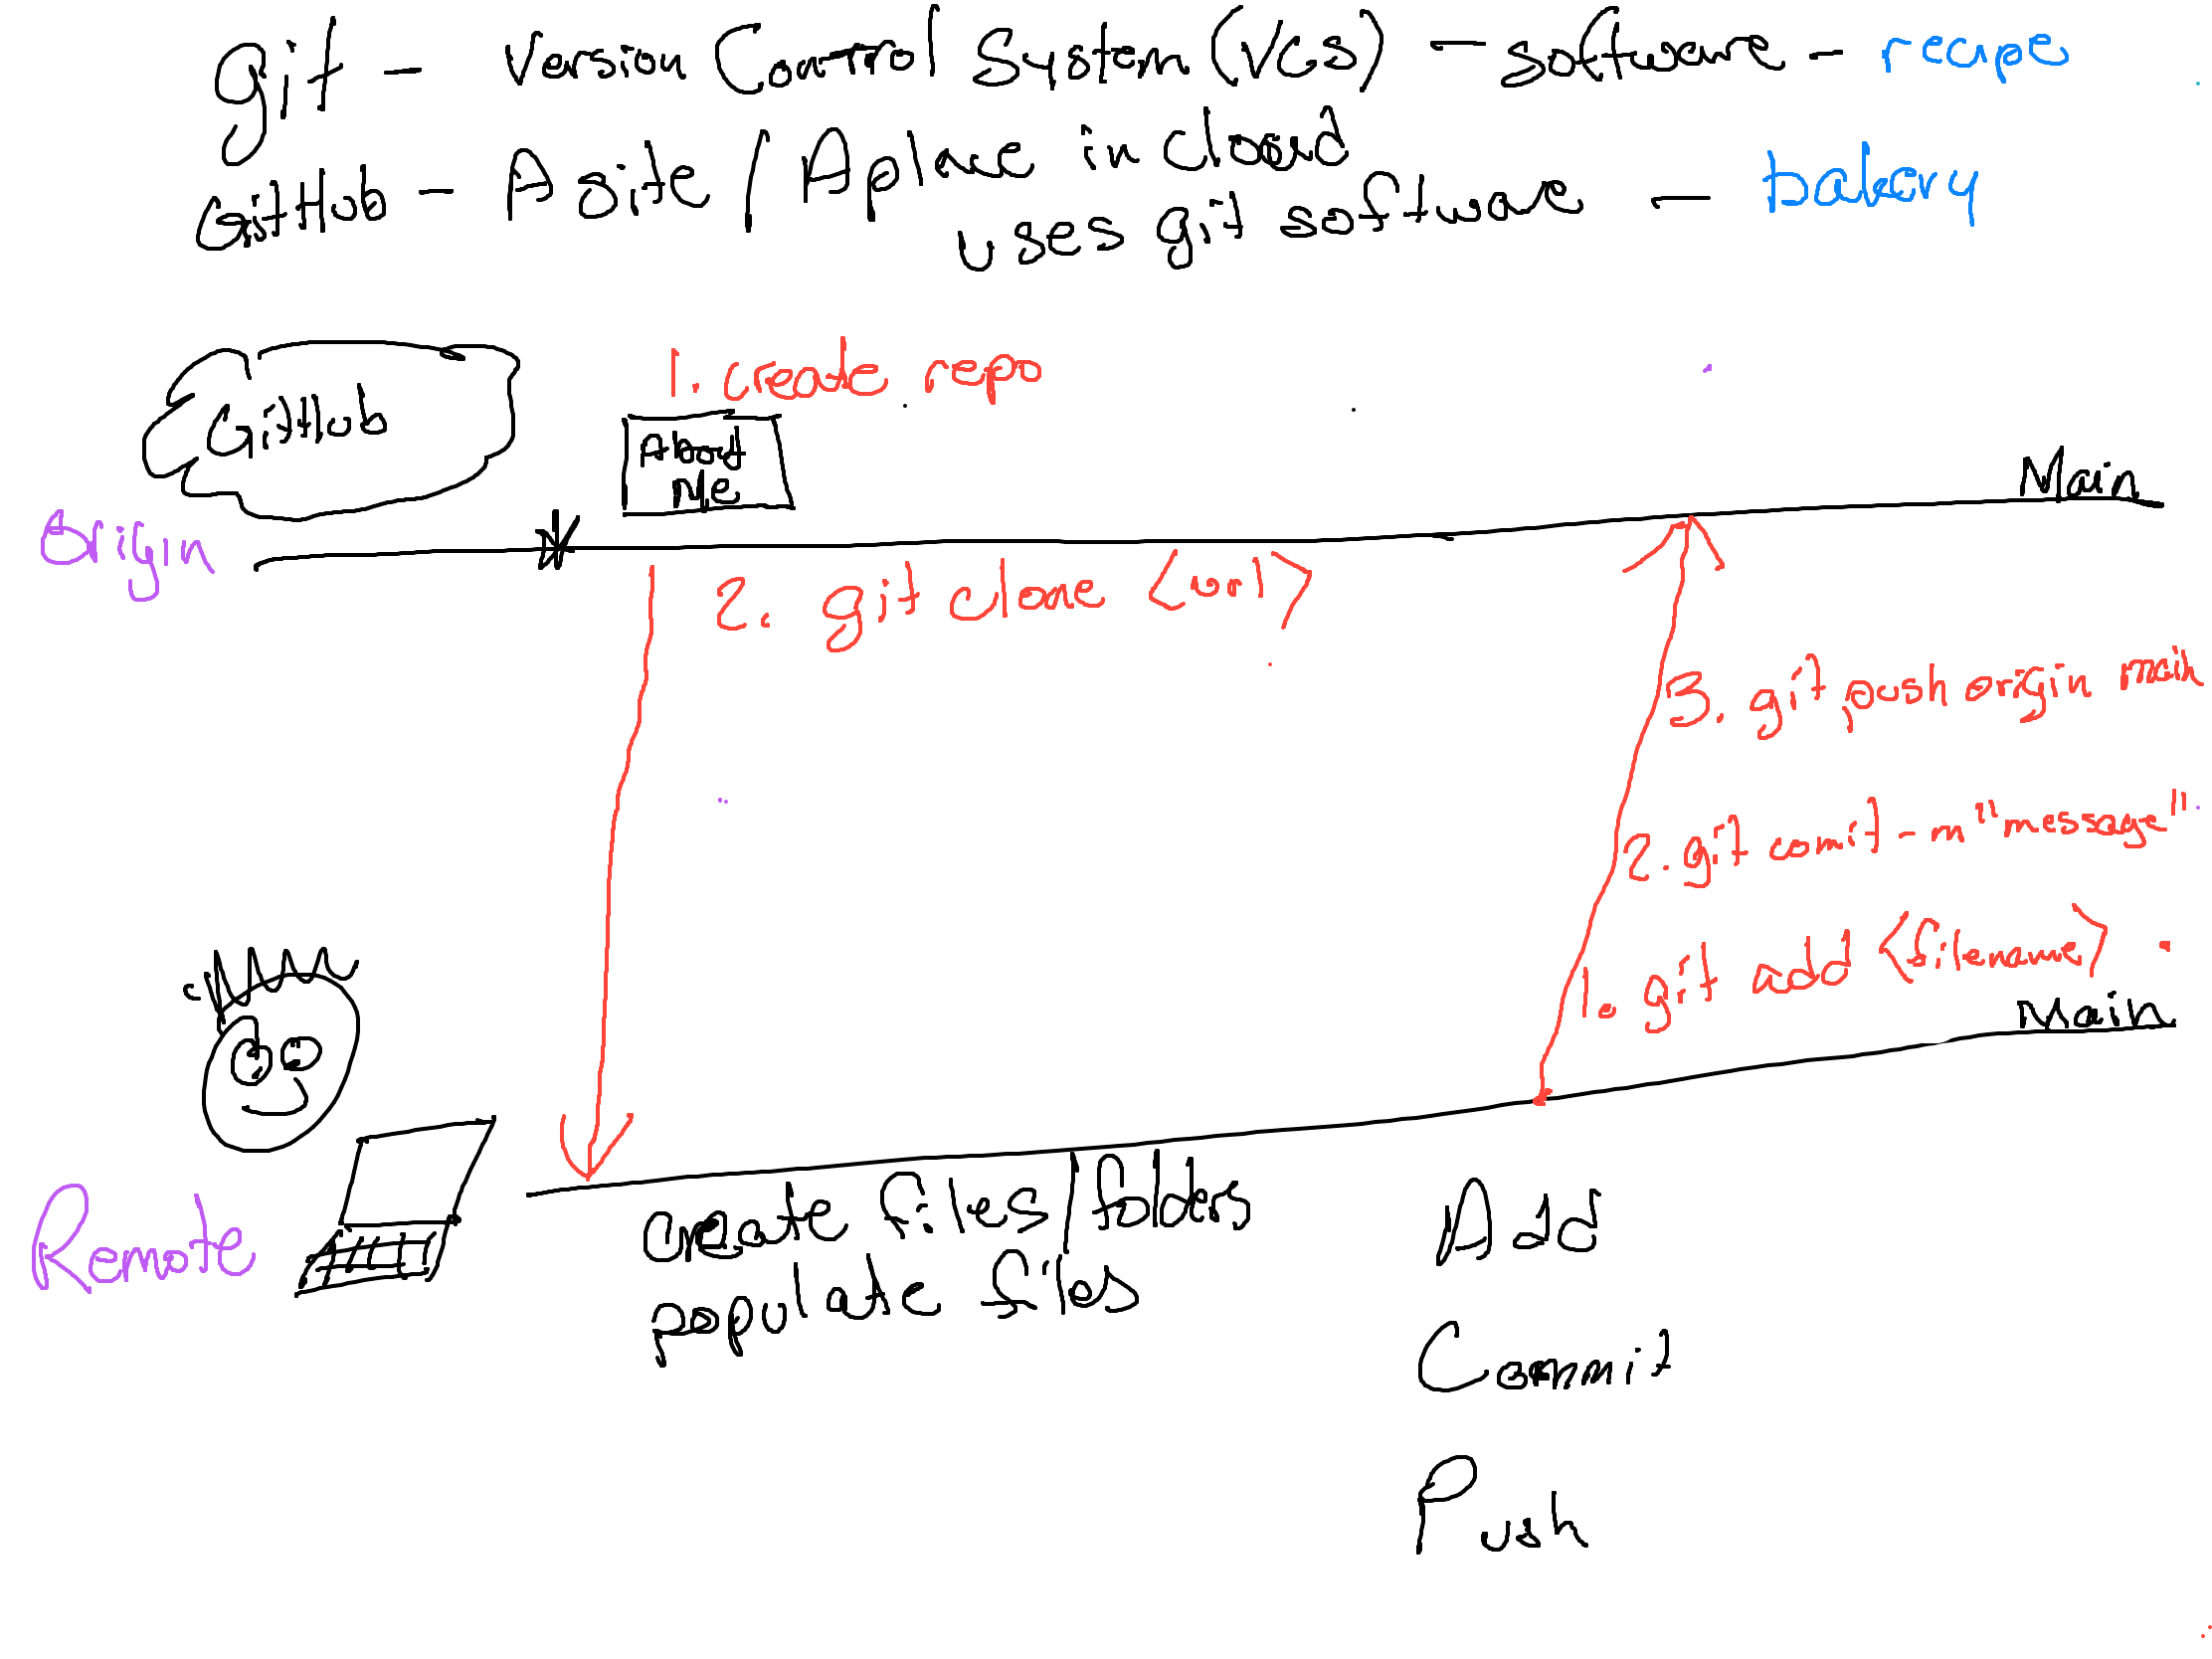 git - Version Control System (VCS) - software - recipe
GitHub - A site / A place in cloud
uses git software - bakery
1. create repo
GitHub
About
Me
Main
Origin
2. git clone <url>
3. git push origin main
2. git comit -m "message"
1. git add <filename> .
Main
Remote
create files/folders
populate files
Add
Commit
Push